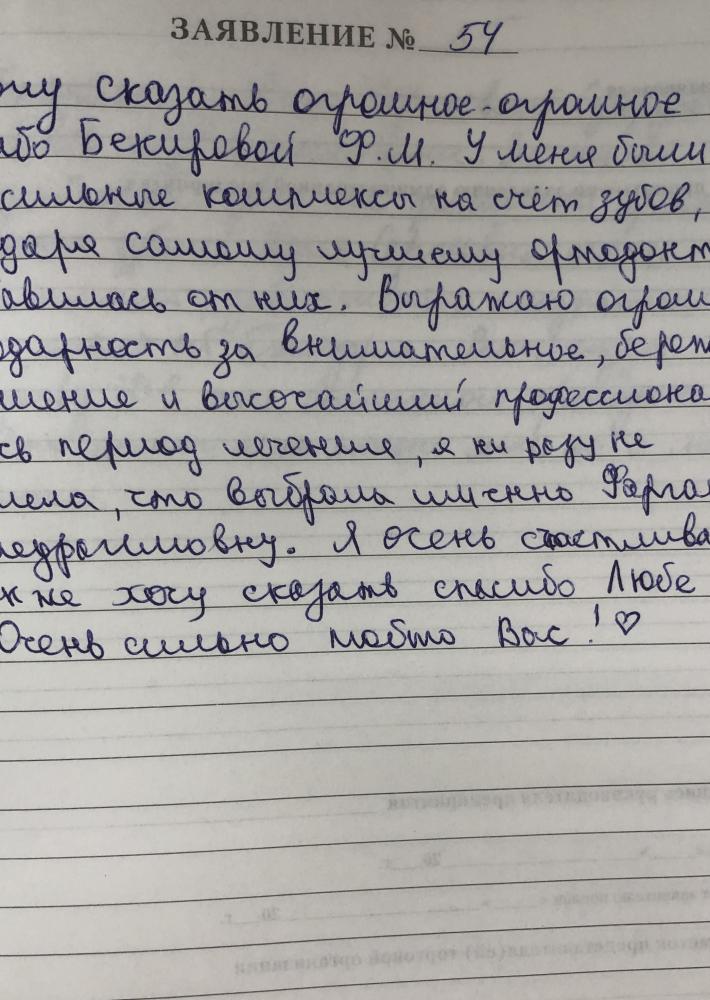 ЗАЯВЛЕНИЕ № 54
чу сказать огромное-огромное
ибо Бекировой Ф.М. У меня были
сильные комплексы на счёт зубов,
даря самому лучшему ортодонт
авилась от них. Выражаю огром
одарность за внимательное, береж
шение и высочайший профессиона
сь период лечения, я ни разу не
лела, что выбрала именно
Я очень счастлива
кже хочу сказать спасибо Любе
Очень сильно люблю Вас! ♡